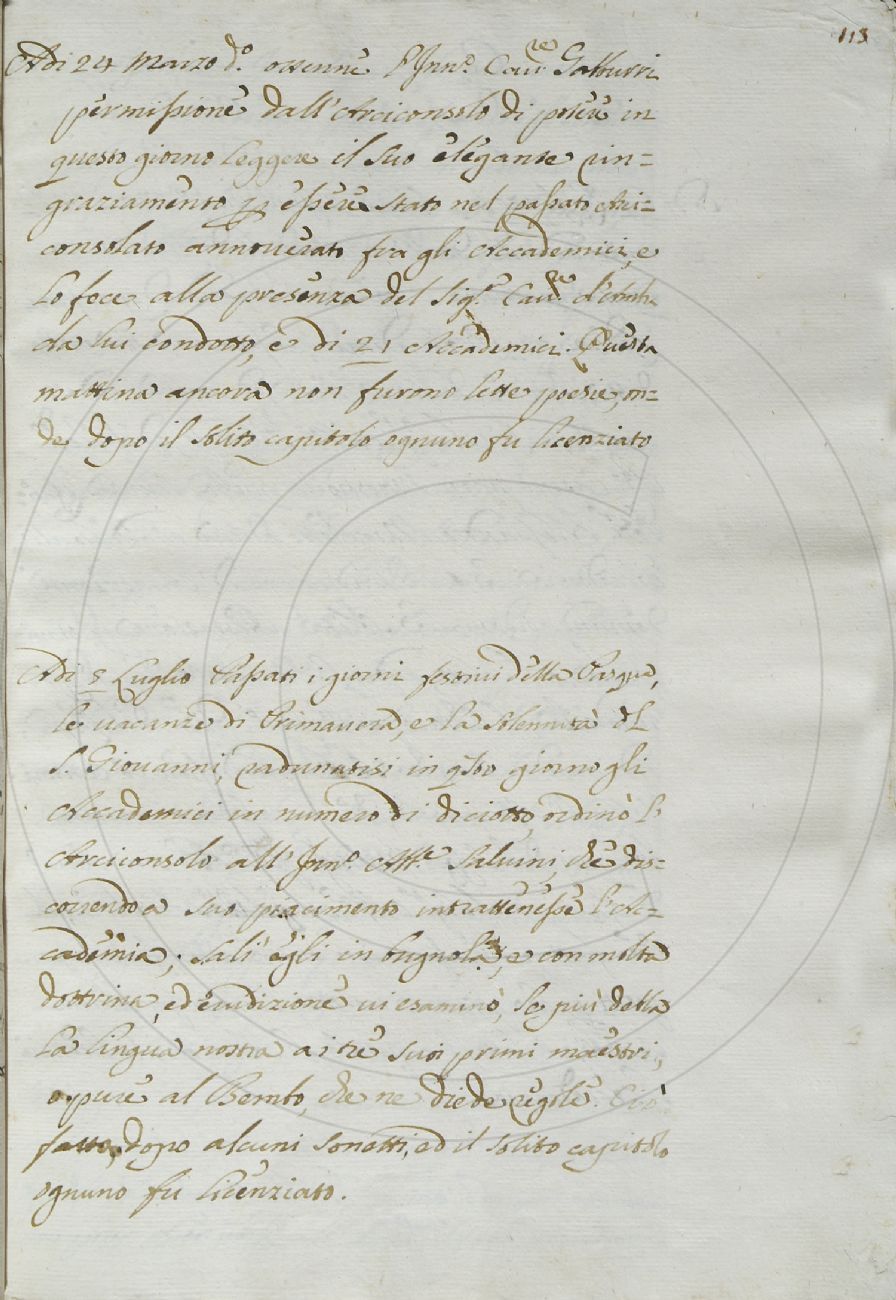 113
Adi 24 Marzo d.º ottenne l'Inn.º Cav.re Gatturri
permissione dall'Arciconsolo di potere in
questo giorno leggere il suo elegante rin=
graziamento p essere stato nel passato Arci=
consolato annoverato fra gli Accademici, e
lo fece alla presenza del Sig.r Cav.re
da lui condotto, e di 21 Accademici. Questa
mattina ancora non furono lette poesie, on=
de dopo il solito capitolo ognuno fu licenziato
Adi 8 Luglio Passati i giorni festivi della Pasqua,
le vacanze di Primavera, e la solennità di
S. Giovanni, radunatisi in qsto giorno gli
Accademici in numero di diciotto, ordinò l'
Arciconsolo all'Inn.º Ab.e Salvini, che dis=
correndo a suo piacimento intrattenesse l'Ac=
cademia; salì egli in bugnola, e con molta
dottrina, ed erudizione vi esaminò, se più della
la lingua nostra ai tre suoi primi maestri,
oppure al Bembo, che ne diede regole. Ciò
fatto, dopo alcuni sonetti, ed il solito capitolo
ognuno fu licenziato.